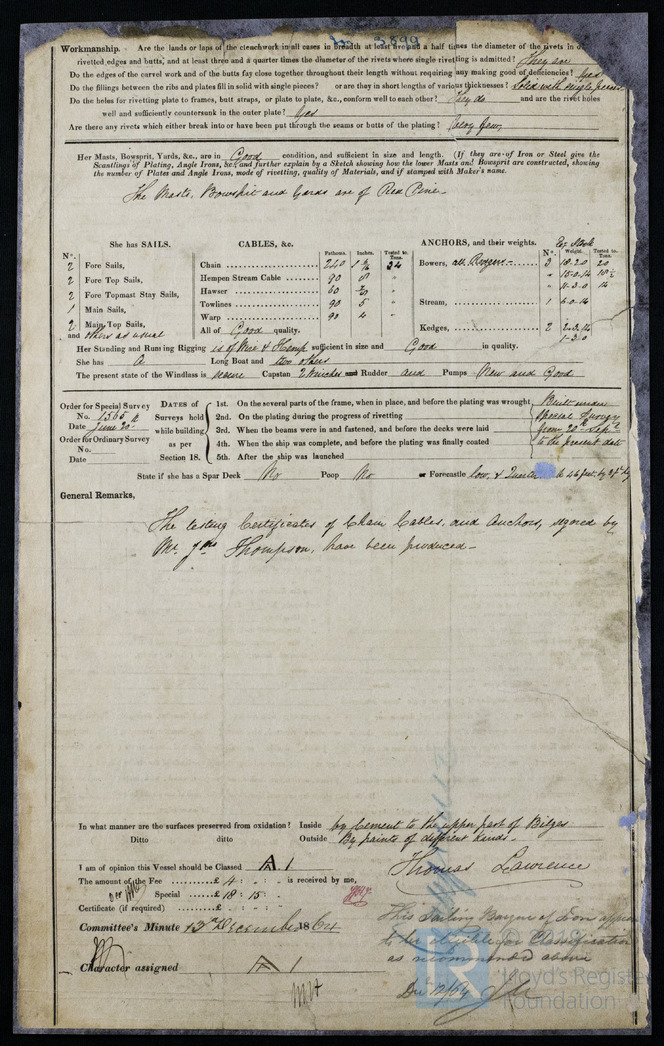 3899
Workmanship. Are the lands or laps of the clenchwork in all cases in breadth at least five and a half times the diameter of the rivets in
rivetted edges and butts, and at least three and a quarter times the diameter of the rivets where single rivetting is admitted? They are
Do the edges of the carvel work and of the butts fay close together throughout their length without requiring any making good of deficiencies? Yes
Do the fillings between the ribs and plates fill in solid with single pieces? or are they in short lengths of various thicknesses? Solid with single pieces
Do the holes for rivetting plate to frames, butt straps, or plate to plate, &c., conform well to each other? They do and are the rivet holes
well and sufficiently countersunk in the outer plate? Yes
Are there any rivets which either break into or have been put through the seams or butts of the plating? Very few
Her Masts, Bowsprit, Yards, &c., are in Good condition, and sufficient in size and length. (If they are of Iron or Steel give the
Scantlings of Plating, Angle Irons, &c., and further explain by a Sketch showing how the lower Masts and Bowsprit are constructed, showing
the number of Plates and Angle Irons, mode of rivetting, quality of Materials, and if stamped with Maker's name.
The Masts, Bowsprit and Yards are of Red Pine
She has SAILS. CABLES, &c. Fathoms. Inches. Tested to Tons. ANCHORS, and their weights. Nº. Ex. Stock Weight. Tested to Tons.
Nº.
2 Fore Sails, Chain 240 34 Bowers, 3 18.2.0 20
2 Fore Top Sails, Hempen Stream Cable 90 8 " " 15.0.14
2 Fore Topmast Stay Sails, Hawser 60 " " 11.3.0 14
1 Main Sails, Towlines 90 5 " Stream, 1 6.0.14
2 Main Top Sails, Warp 90 4 "
and others as usual All of Good quality. Kedges, 2
1.3.0
Her Standing and Running Rigging is of Wire & Hemp sufficient in size and Good in quality.
She has A Long Boat and two others
The present state of the Windlass is secure Capstan 2 Winches and Rudder and Pumps New and Good
Order for Special Survey No. 1365 Date June 20
Order for Ordinary Survey No. Date
DATES of Surveys held while building as per Section 18.
1st. On the several parts of the frame, when in place, and before the plating was wrought
2nd. On the plating during the progress of rivetting
3rd. When the beams were in and fastened, and before the decks were laid
4th. When the ship was complete, and before the plating was finally coated
5th. After the ship was launched
Built under
Special Survey
from 20th Sepr
to the present date
State if she has a Spar Deck No Poop No or Forecastle low, &
General Remarks,
The testing Certificates of Chain Cables, and Anchors, signed by
Mr. Jno Thompson, have been produced
In what manner are the surfaces preserved from oxidation? Inside by Cement to the upper part of Bilges
Ditto ditto Outside By paints of different kinds
I am of opinion this Vessel should be Classed A 1
Thomas Lawrence
The amount of the Fee £ 4 : - : - is received by me,
Special £ 18 : 15 : -
Certificate (if required) £ : :
Committee's Minute 13th December 1864
Character assigned A 1
This Sailing Barque of Iron
to be eligible for Classification
as recommended above
Dec 12/64
© 2018
Lloyd's Register
Foundation